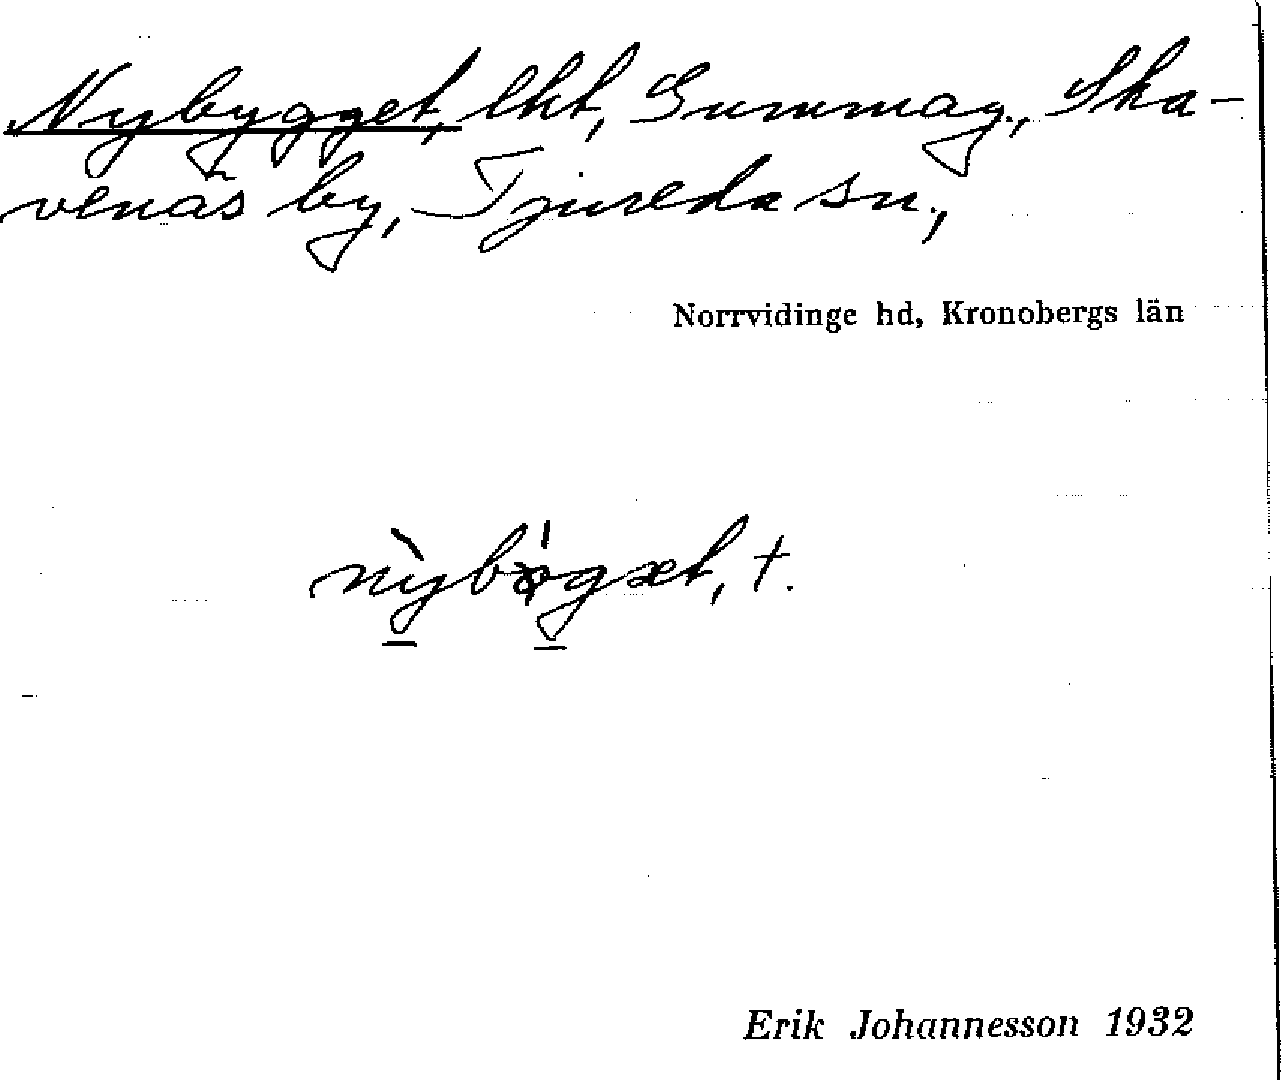 Nybygget, lht, Gummag., Ska-
venäs by, Tjureda sn.,
Norrvidinge hd, Kronobergs län
nỳbøgæt, †.
Erik Johannesson 1932